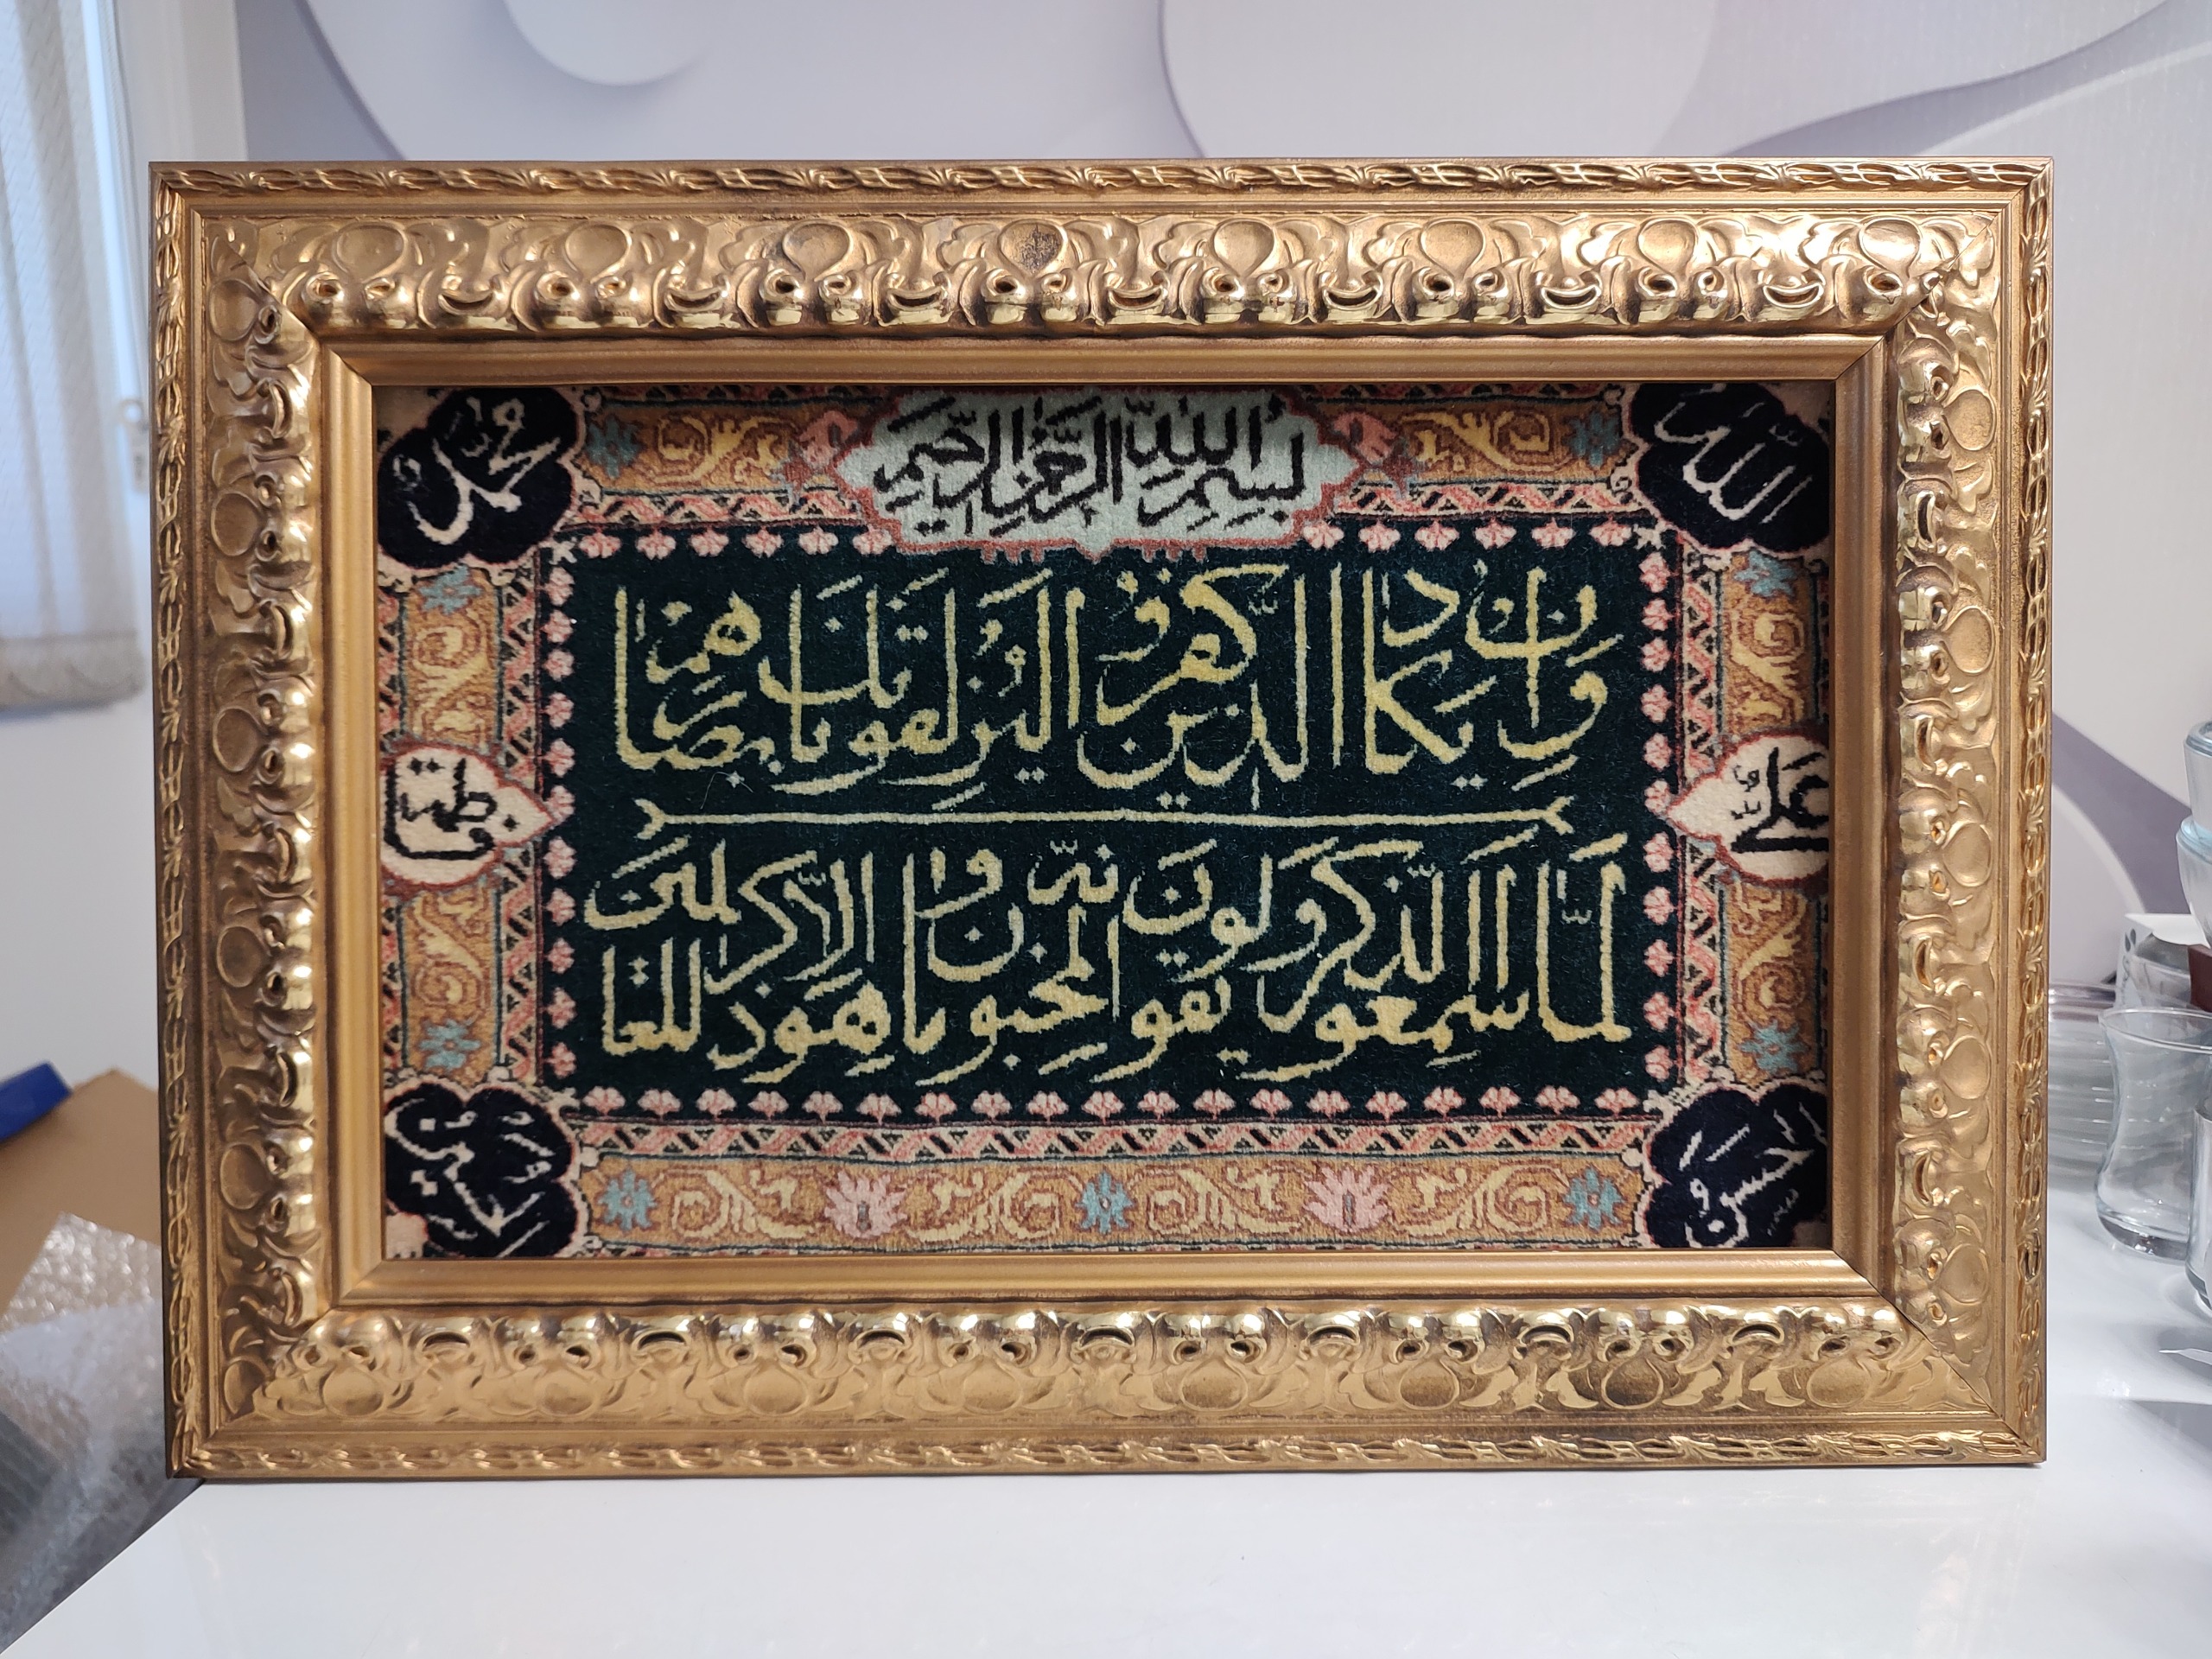 الله
بسم الله الرحمن الرحيم
محمد
وان يكاد الذين كفروا ليزلقونك بابصارهم
لما سمعوا الذكر ويقولون انه لمجنون وما هو الا ذكر للعالمين
علي
فاطمة
حسين